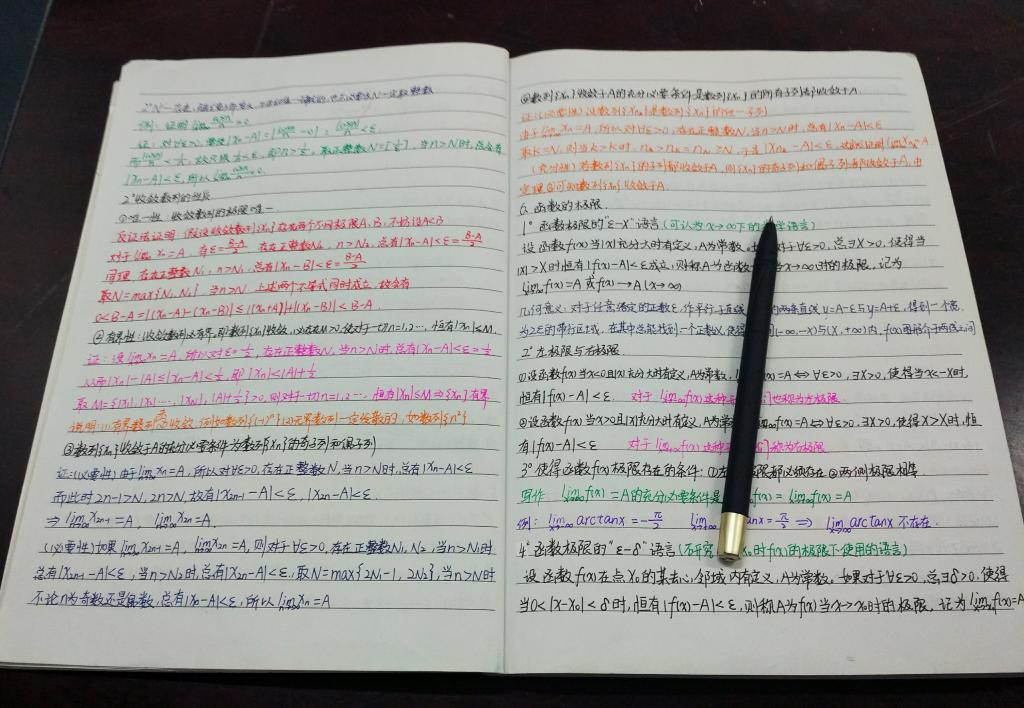 2°N一定是
例：证明
证：对∀ε>0，要使|Xn-A|= <ε
<ε，取正整数N=[ ]，当n>N时，总会有
|Xn-A|<ε，所以
2°收敛数列的性质
①唯一性：收敛数列的极限唯一
反证法证明：假设收敛数列{Xn}存在两个不同极限A、B，不妨设A<B
对于lim Xn=A，存ε=B-A/2，存在正整数N₁，n>N₁，总有|Xn-A|<ε=B-A/2
同理，存在正整数N₂，n>N₂，总有|Xn-B|<ε=B-A/2
取N=max{N₁,N₂}，当n>N，上述两个不等式同时成立，故会有
0<B-A=|(Xn-A)-(Xn-B)|≤|Xn-A|+|Xn-B|<B-A
②有界性：收敛数列必有界，即数列{Xn}收敛，必存在M>0，使对于一切n=1,2…，恒有|Xn|≤M.
证：设lim Xn=A，所以对ε=½，存在正整数N，当n>N时，总有|Xn-A|<ε=½
从而|Xn|-|A|≤|Xn-A|<½，即|Xn|<|A|+½
取M={|X₁|,|X₂|…,|Xn|,|A|+½}>0，则对于一切n=1,2…，恒有|Xn|≤M⇒{Xn}有界
说明：(1)有界数列不一定收敛，例如数列{(-1)ⁿ} (2)无界数列一定发散的，如数列{n²}
③数列{Xn}收敛于A的充分必要条件为数列{Xn}的奇子列和偶子列
证：(必要性)由于lim Xn=A，所以对∀ε>0，存在正整数N，当n>N时，总有|Xn-A|<ε
而此时2n-1>N，2n>N，故有|X2n-1-A|<ε，|X2n-A|<ε.
⇒lim X2n-1=A，lim X2n=A.
(必要性)如果lim X2n-1=A，lim X2n=A，则对于∀ε>0，存在正整数N₁、N₂，当n>N₁时
总有|X2n-1-A|<ε，当n>N₂时，总有|X2n-A|<ε，取N=max{2N₁-1，2N₂}，当n>N时
不论n为奇数还是偶数，总有|Xn-A|<ε，所以lim Xn=A
④数列{Xn}收敛于A的充分必要条件是数列{Xn}的所有子列都收敛于A.
证：(必要性)设数列{Xnk}是数列{Xn}的任一子列
由于lim Xn=A，所以对∀ε>0，存在正整数N，当n>N时，总有|Xn-A|<ε
取K=N，则当k>K时，nk>nK=nN≥N，于是|Xnk-A|<ε，这就证明lim Xnk=A
(充分性)若数列{Xn}的子列都收敛于A，则{Xn}的奇子列和偶子列都收敛于A，由
定理③可知数列{Xn}收敛于A.
6、函数的极限
1°函数极限的"ε-X"语言(可认为x→∞下的 学语言)
设函数f(x)当|x|充分大时有定义，A为常数。如 对于∀ε>0，总∃X>0，使得当
|x|>X时恒有|f(x)-A|<ε成立，则称A为函数 当x→∞时的极限，记为
lim f(x)=A或f(x)→A(x→∞)
几何意义：对于任意给定的正数ε，作平行于直线 的两条直线y=A-ε与y=A+ε，得到一个宽
为2ε的带行区域，在其中总能找到一个正数X，使得 (-∞,-X)与(X,+∞)内，f(x)图形介于两线之间
2°左极限与右极限
①设函数f(x)当x<0且|x|充分大时有定义，A为常数， (x)=A⇔∀ε>0，∃X>0，使得当x<-X时，
恒有|f(x)-A|<ε. 对于lim f(x)这种 也称为左极限
②设函数f(x)当x>0且|x|充分大时有定义，A为常 =A⇔∀ε>0，∃X>0，使得x>X时，恒
有|f(x)-A|<ε 对于lim f(x)这种 称为右极限
3°使得函数f(x)极限存在的条件：①左 极限都必须存在②两侧极限相等
写作 lim f(x)=A的充分必要条件是 f(x)=lim f(x)=A
例：lim arctanx=-π/2 lim nx=π/2⇒lim arctanx不存在.
4°函数极限的"ε-δ"语言(不研究 x₀时f(x)的极限下使用的语言)
设函数f(x)在点X₀的某去心邻域内有定义，A为常数。如果对于∀ε>0，总∃δ>0，使得
当0<|x-x₀|<δ时，恒有|f(x)-A|<ε，则称A为f(x)当x→x₀时的极限，记为lim f(x)=A